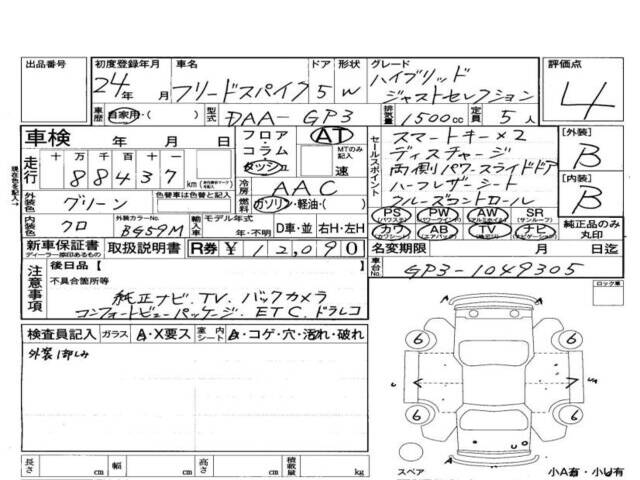 出品番号
初度登録年月 車名 ドア 形状 グレード 評価点
24年 月 フリードスパイク 5 W ハイブリッド
ジャストセレクション 4
車歴 自家用・( ) 型式 DAA-GP3 排気量 1500cc 定員 5人
車検 年 月 日
フロア・コラム・ダッシュ AT MTのみ記入 速
現在色を記入→
走行 十万千百十一
88437 km
セールスポイント
スマートキー×2
ディスチャージ
両側パワースライドドア
ハーフレザーシート
クルーズコントロール
[外装] B
[内装] B
外装色 グリーン 色替車は色替前の色
冷房 AAC
燃料 ガソリン・軽油・( )
内装色 クロ 外装カラーNo. BG59M 輸入車 モデル年式 年・不明 D車・並 右H・左H
PS PW AW SR(サンルーフ)
カワ AB TV ナビ
純正品のみ丸印
新車保証書 ディーラー捺印あるもの 取扱説明書 R券 ¥12,090
名変期限 月 日迄
車台No. GP3-1049305
注意事項
後日品【 】
不具合箇所等
純正ナビ.TV.バックカメラ
コンフォートビューパッケージ.ETC.ドラレコ
ロック車
検査員記入 ガラス A・X要ス 室内シート A・コゲ・穴・汚れ・破れ
外装1却しみ
6 6
6 6
長さ cm 幅 cm 高さ cm 積載量 kg
スペア 小A有・小U有